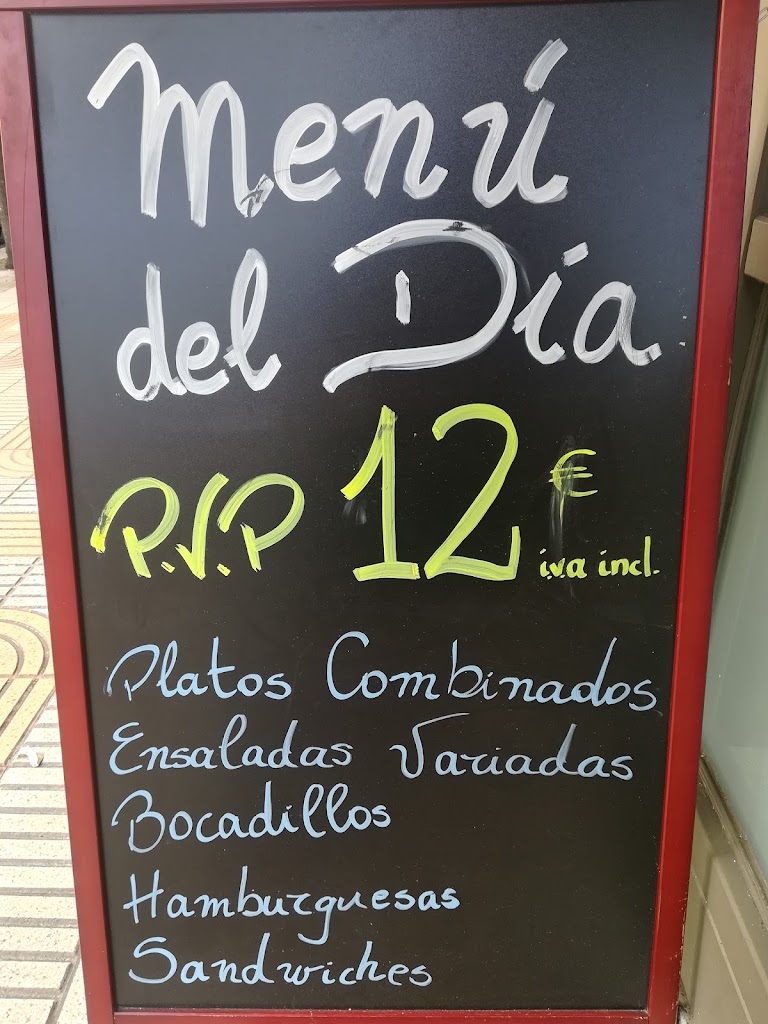 Menú
del Día
P.V.P 12 €
i.v.a incl.
Platos Combinados
Ensaladas Variadas
Bocadillos
Hamburguesas
Sandwiches